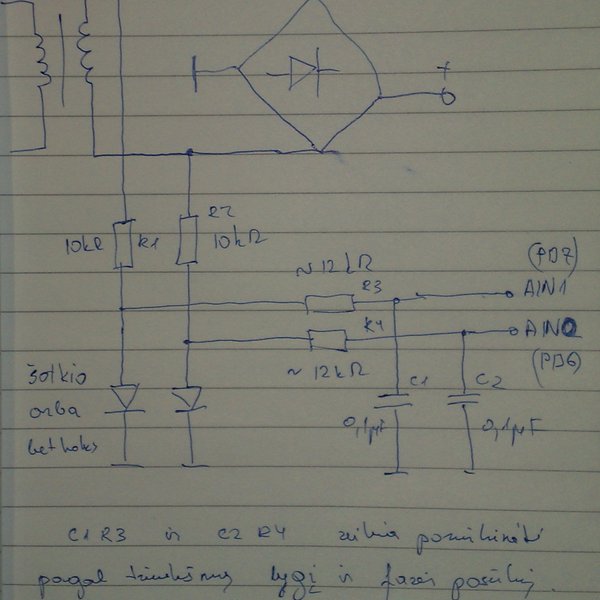 +
10kΩ R1
R2
10kΩ
~12kΩ
R3
(PD7)
AIN1
R4
AIN0
(PD6)
~12kΩ
šotkio
arba
bet koks
C1
0,1µF
C2
0,1µF
C1 R3 ir C2 R4 reikia parinkinėti
pagal triukšmų lygį ir fazės